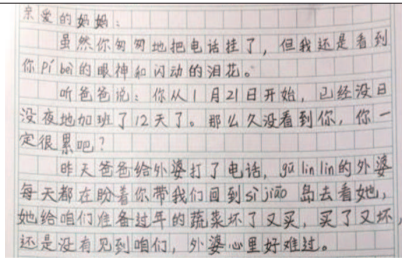 亲爱的妈妈：
虽然你匆匆地把电话挂了，但我还是看到
你pí bèi的眼神和闪动的泪花。
听爸爸说：你从1月21日开始，已经没日
没夜地加班了12天了。那么久没看到你，你一
定很累吧？
昨天爸爸给外婆打了电话，gū lin lin的外婆
每天都在盼着你带我们回到sì jiāo 岛去看她，
她给咱们准备过年的蔬菜坏了又买，买了又坏，
还是没有见到咱们，外婆心里好难过。